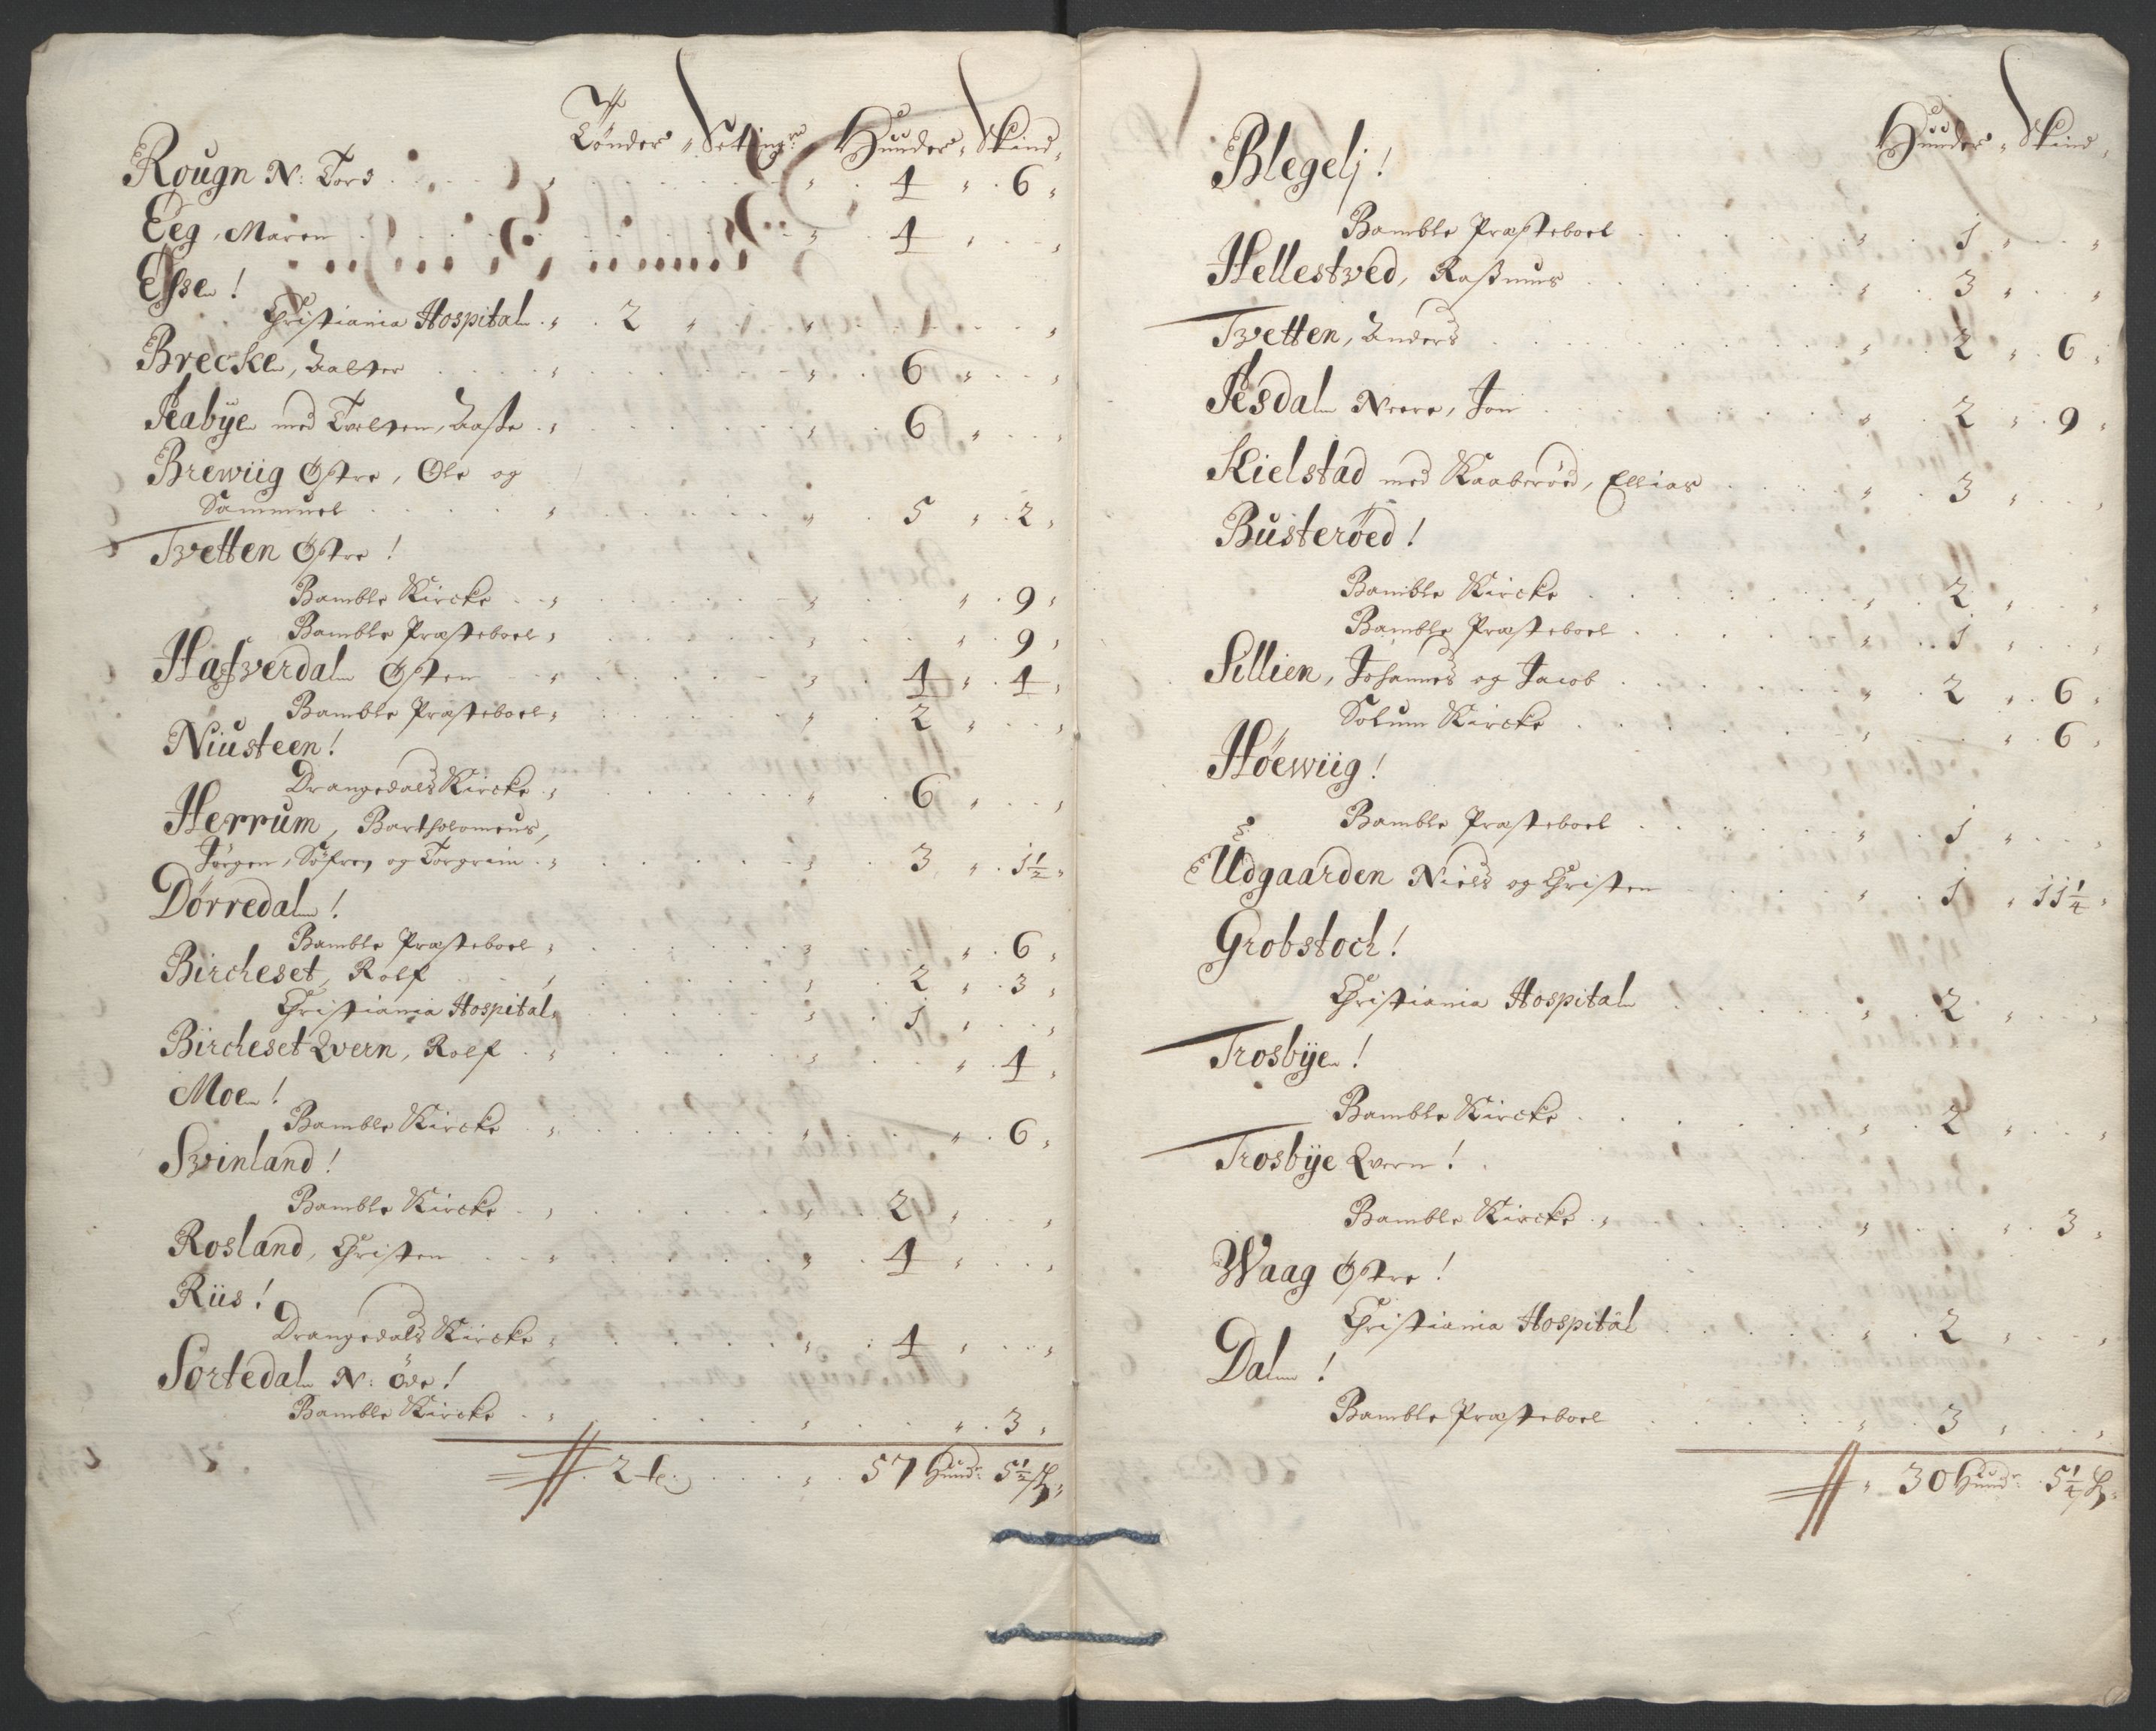 Tønder „ Setting: „ Huuder „ Skind „
Rougn N: Tord . . . „ . . . „ . 4 „ . 6 „
Eeg, Maren . . . „ . 4 „ . . „
Esse !
Christiania Hospital . „ . 2 „ . . „ . . . „
Brecke, Halvor . . . „ . . . „ . 6 „ . . „
Aabÿe med Tvelten, Aasle . „ . . . „ . 6 „ . . „
Brewiig Østre, Ole og
Sammuel . . . „ . . . „ . 5 „ . 2 „
Tvetten Østre !
Bamble Kircke . . „ . . . „ . . „ . 9 „
Bamble Præsteboel „ . . . „ . . „ . 9 „
Hafverdal Østen . . „ . . . „ . 4 „ . 4 „
Bamble Præsteboel „ . . . „ . 2 „ . . „
Niusteen !
Drangedals Kircke . „ . . . „ . 6 „ . . „
Herrum, Bartholomeus,
Jørgen, Søfren og Torgrim . „ . . . „ . 3 „ . 1½ „
Dørredal !
Bamble Præsteboel „ . . . „ . . „ . 6 „
Bircheset, Rolf . . „ . . . „ . 2 „ . 3 „
Christiania Hospital „ . . . „ . 1 „ . . „
Bircheset Qvern, Rolf . „ . . . „ . . „ . 4 „
Moe !
Bamble Kircke . „ . . . „ . . „ . 6 „
Svinland !
Bamble Kircke . „ . . . „ . 2 „ . . „
Rosland, Christen . . „ . . . „ . 4 „ . . „
Riis !
Drangedals Kircke „ . . . „ . 4 „ . . „
Sortedal N: øde !
Bamble Kircke . „ . . . „ . . „ . 3 „
. 2 . . . „ . 57 Huud: 5½ „
Huuder „ Skind „
Blegelj !
Bamble Præsteboel . . . „ . 1 „ . . „
Hellestved, Rasmus . . . „ . 3 „ . . „
Tvetten, Anders . . . „ . 2 „ . 6 „
Aesdal Neere, Jon . . . „ . 2 „ . 9 „
Kielstad med Kaaberøed, Ellias . . . „ . 3 „ . . „
Busterøed !
Bamble Kircke . . . „ . 2 „ . . „
Bamble Præsteboel . . . „ . 1 „ . . „
Sillien, Johannes og Jacob . . . „ . 2 „ . 6 „
Solum Kircke . . . „ . . „ . 6 „
Høewiig !
Bamble Præsteboel . . . „ . 1 „ . . „
Udgaarden Niels og Christen . . . „ . 1 „ 11¼ „
Grobstoch !
Christiania Hospital . . . „ . 2 „ . . „
Trosbÿe !
Bamble Kircke . . . „ . 2 „ . . „
Trosbÿe Qvern !
Bamble Kircke . „ . . . „ . . „ . 3 „
Waag Østre !
Christiania Hospital . . . „ . 2 „ . . „
Dal !
Bamble Præsteboel . . . „ . 3 „ . . „
„ 30 Huud: . 5¼ „